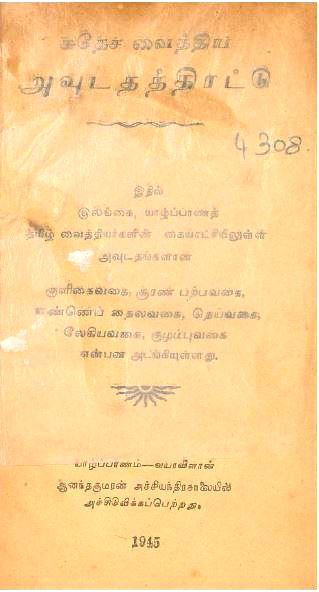 சுதேச வைத்திய
அவுடதத்திரட்டு
4308
இதில்
இலங்கை, யாழ்ப்பாணத்
தமிழ் வைத்தியர்களின் கையாட்சியிலுள்ள
அவுடதங்களான
குளிகைவகை, சூரண பற்பவகை,
எண்ணெய் தைலவகை, நெய்வகை,
லேகியவகை, குழம்புவகை
என்பன அடங்கியுள்ளது.
யாழ்ப்பாணம்—வயாவிளான்
ஆனந்தகுமரன் அச்சியந்திரசாலையில்
அச்சிடுவிக்கப்பெற்றது.
1945